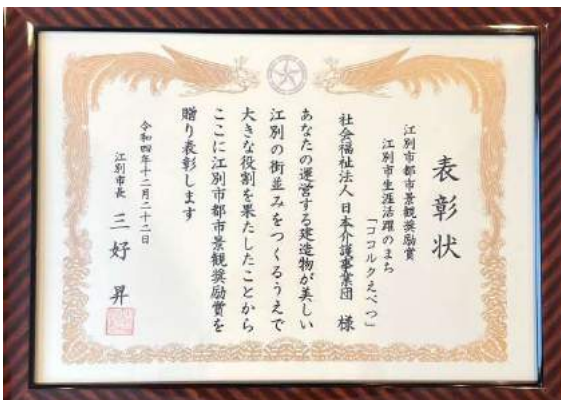 表彰状
江別市都市景観奨励賞
江別市生涯活躍のまち
「ココルクえべつ」
社会福祉法人 日本介護事業団 様
あなたの運営する建造物が美しい
江別の街並みをつくるうえで
大きな役割を果たしたことから
ここに江別市都市景観奨励賞を
贈り表彰します
令和四年十二月二十二日
江別市長 三好 昇